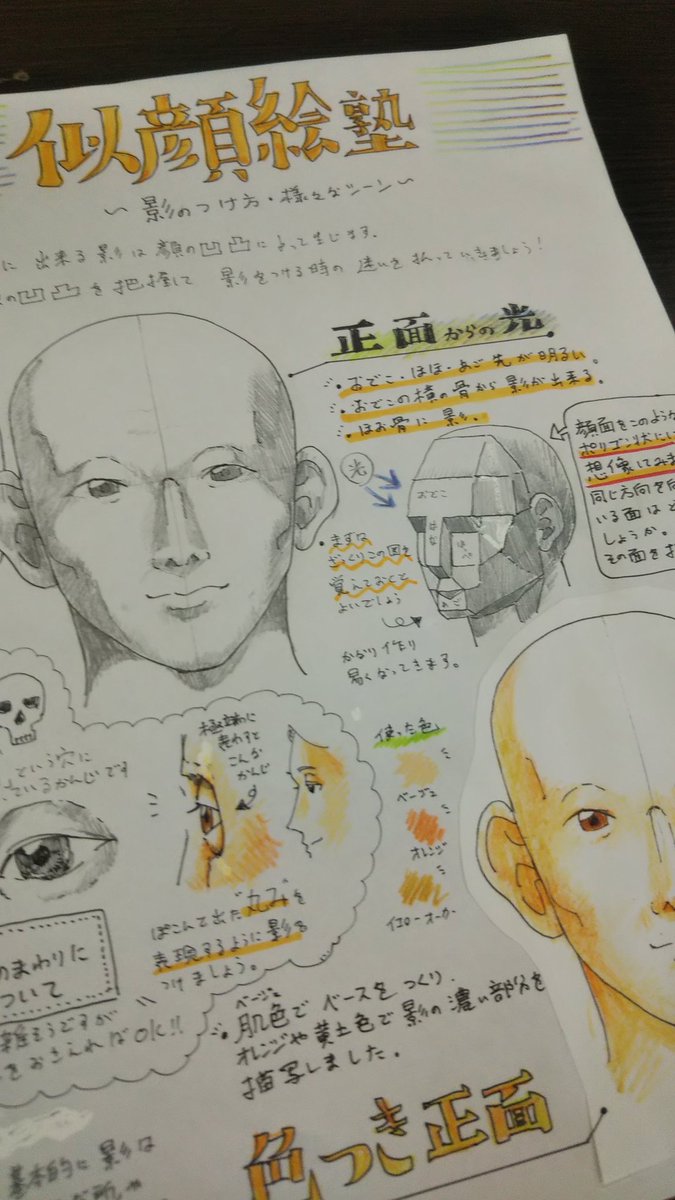 似顔絵塾
～影のつけ方・様々なシーン～
に出来る影は顔の凹凸によって生じます。
の凹凸を把握して 影をつける時の迷いを払っていきましょう!
正面からの光
・おでこ・ほほ・あご先が明るい。
・おでこの横の骨から影が出来る。
・ほお骨に影。
光
おでこ
はな
ほべ
あご
・まずは
ざっくりこの図を
覚えておくと
よいでしょう
かなり作り
易くなってきます。
顔面をこのような
ポリゴン状に
想像してみま
同じ方向を向
いる面はど
しょうか。
その面を
という穴に
いるかんじです
極端に
表わすと
こんな
かんじ
ぽこんと出た"丸み"を
表現するように影を
つけましょう。
のまわりに
ついて
難そうですが
をおさえればOK!!
使った色
ベージュ
オレンジ
イエローオーカー
ベージュ
・肌色でベースをつくり、
オレンジや黄土色で影の濃い部分を
描写しました。
色つき正面
基本的に影は